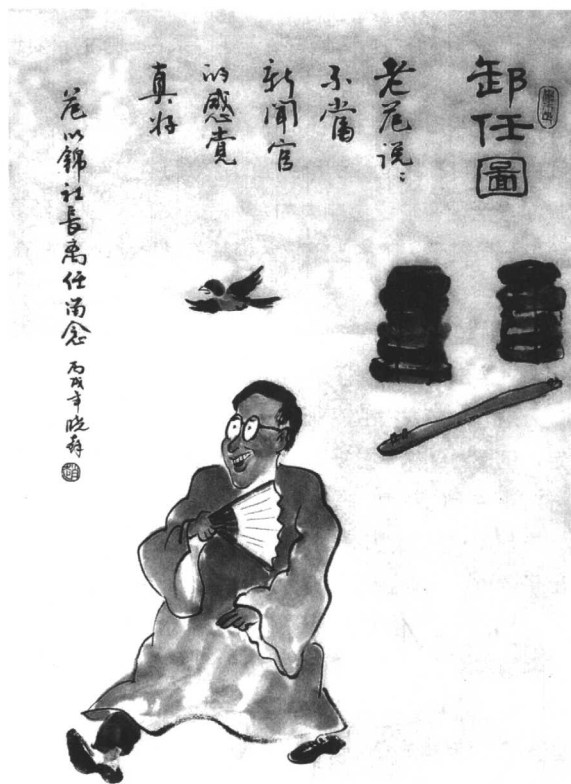 卸任圖
老范说：
不當
新聞官
的感覚
真好
范以錦社長离任留念
丙戌年晓